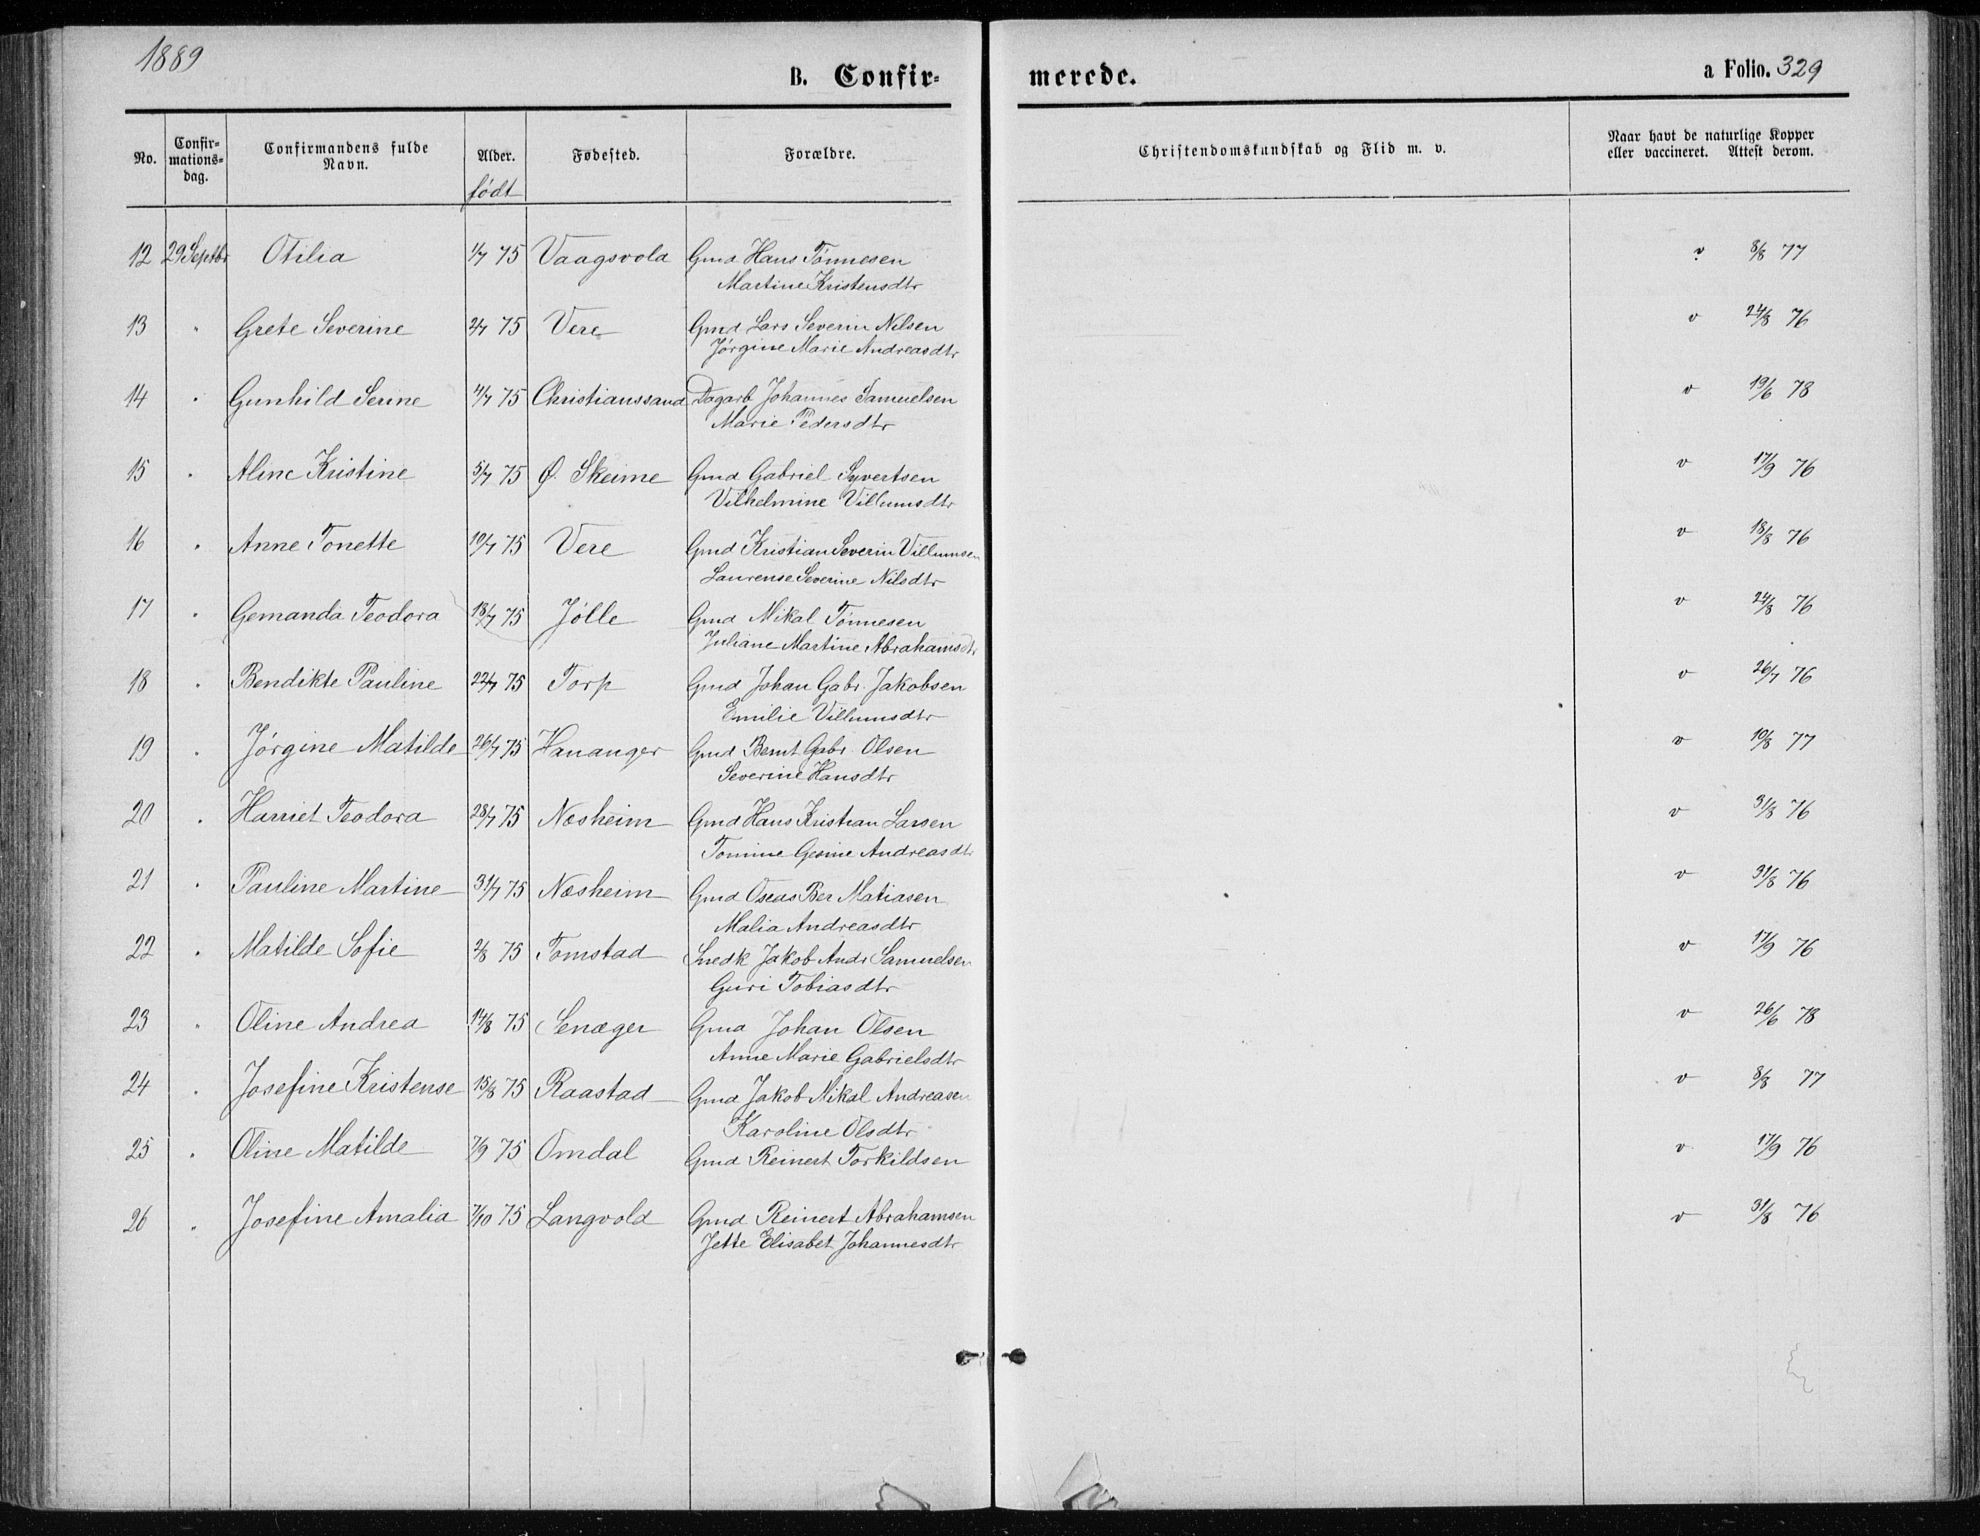 1889
B. Confir-
merede.
a Folio. 329
No.
Confir-
mations-
dag.
Confirmandens fulde
Navn.
Alder.
født
Fødested.
Forældre.
Christendomskundskab og Flid m. v.
Naar havt de naturlige Kopper
eller vaccineret. Attest derom.
12 29 Septbr Otilia 1/7 75 Vaagsvold Gmd Hans Tønnesen v 8/8 77
Martine Kristensdtr
13 " Grete Severine 2/7 75 Vere Gmd Lars Severin Nilsen v 24/8 76
Jørgine Marie Andreasdtr
14 " Gunhild Serine 4/7 75 Christianssand Dagarb Johannes Samuelsen v 19/6 78
Marie Pedersdtr
15 " Aline Kristine 5/7 75 Ø. Skeime Gmd Gabriel Syvertsen v 17/9 76
Vilhelmine Villumsdtr
16 " Anne Tonette 10/7 75 Vere Gmd Kristian Severin Villumsen v 18/8 76
Laurense Severine Nilsdtr
17 " Gemanda Teodora 18/7 75 Jølle Gmd Mikal Tønnesen v 24/8 76
Juliane Martine Abrahamsdtr
18 " Bendikte Pauline 22/7 75 Torp Gmd Johan Gabr. Jakobsen v 26/7 76
Emilie Villumsdtr
19 " Jørgine Matilde 26/7 75 Hananger Gmd Bernt Gabr. Olsen v 10/8 77
Severine Hansdtr
20 " Harriet Teodora 28/7 75 Nesheim Gmd Hans Kristian Larsen v 31/8 76
Tomine Gesine Andreasdtr
21 " Pauline Martine 31/7 75 Nesheim Gmd Oseas Ber Matiasen v 31/8 76
Malia Andreasdtr
22 " Matilde Sofie 2/8 75 Tomstad Snedk Jakob Andr Samuelsen v 17/9 76
Guri Tobiasdtr
23 " Oline Andrea 14/8 75 Senæger Gmd Johan Olsen v 26/6 78
Anne Marie Gabrielsdtr
24 " Josefine Kristense 15/8 75 Raastad Gmd Jakob Mikal Andreasen v 8/8 77
Karoline Olsdtr
25 " Oline Matilde 7/9 75 Omdal Gmd Reinert Torkildsen v 17/9 76
26 " Josefine Amalia 7/10 75 Langvold Gmd Reinert Abrahamsen v 31/8 76
Jette Elisabet Johannesdtr